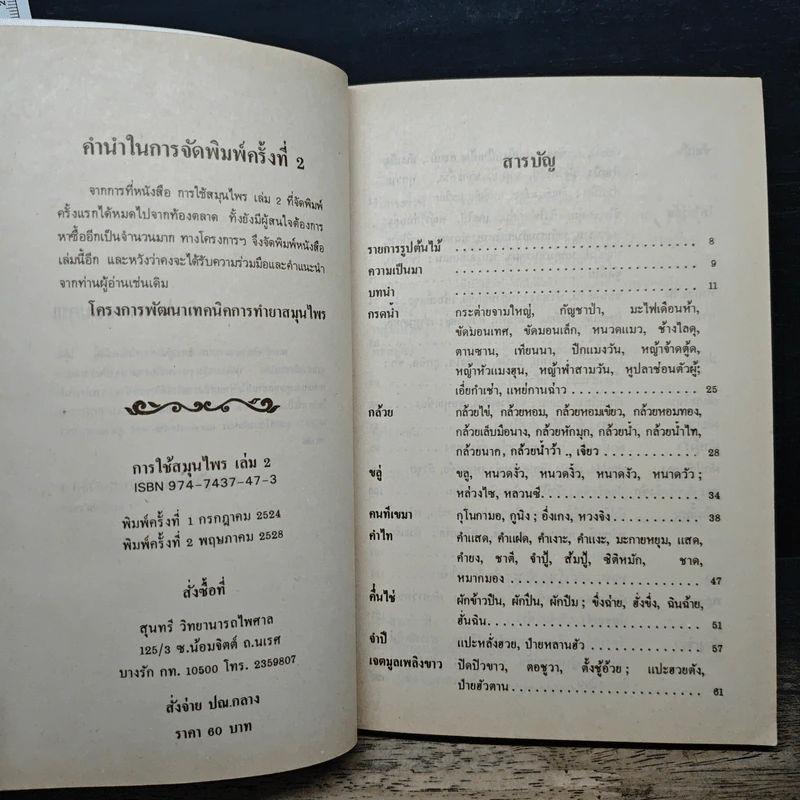 คำนำในการจัดพิมพ์ครั้งที่ 2
จากการที่หนังสือ การใช้สมุนไพร เล่ม 2 ที่จัดพิมพ์
ครั้งแรกได้หมดไปจากท้องตลาด ทั้งยังมีผู้สนใจต้องการ
หาซื้ออีกเป็นจำนวนมาก ทางโครงการฯ จึงจัดพิมพ์หนังสือ
เล่มนี้อีก และหวังว่าคงจะได้รับความร่วมมือและคำแนะนำ
จากท่านผู้อ่านเช่นเดิม
โครงการพัฒนาเทคนิคการทำยาสมุนไพร
การใช้สมุนไพร เล่ม 2
ISBN 974-7437-47-3
พิมพ์ครั้งที่ 1 กรกฎาคม 2524
พิมพ์ครั้งที่ 2 พฤษภาคม 2528
สั่งซื้อที่
สุนทรี วิทยานารถไพศาล
125/3 ซ.น้อมจิตต์ ถ.นเรศ
บางรัก กท. 10500 โทร. 2359807
สั่งจ่าย ปณ.กลาง
ราคา 60 บาท
สารบัญ
รายการรูปต้นไม้ 8
ความเป็นมา 9
บทนำ 11
กรดน้ำ กระต่ายจามใหญ่, กัญชาป่า, มะไฟเดือนห้า,
ขัดมอนเทศ, ขัดมอนเล็ก, หนวดแมว, ช้างไลดุ,
ตานซาน, เทียนนา, ปีกแมงวัน, หญ้าจ้าดตู้ด,
หญ้าหัวแมงฮุน, หญ้าพ่ำสามวัน, หูปลาช่อนตัวผู้;
เอี่ยกำเช่า, แหย่กานฉ่าว 25
กล้วย กล้วยไข่, กล้วยหอม, กล้วยหอมเขียว, กล้วยหอมทอง,
กล้วยเล็บมือนาง, กล้วยหักมุก, กล้วยน้ำ, กล้วยน้ำไท,
กล้วยนาก, กล้วยน้ำว้า ., เจียว 28
ขลู่ ขลู, หนวดงั่ว, หนวดงิ้ว, หนาดงัว, หนาดวัว ;
หล่วงไซ, หลวนซี 34
คนทีเขมา กุโนกามอ, กูนิง ; อึ่งเกง, หวงจิง 38
คำไท คำแสด, คำแฝด, คำเงาะ, คำแงะ, มะกายหยุม, แสด,
คำยง, ชาตี, จำปู้, ส้มปู้, ซิติหมัก, ชาด,
หมากมอง 47
คึ่นไช่ ผักข้าวปืน, ผักปืน, ผักปืม ; ขึ่งฉ่าย, ฮั่งขึ่ง, ฉินฉ้าย,
ฮั่นฉิน 51
จำปี แปะหลั่งฮวย, ป๋ายหลานฮัว 57
เจตมูลเพลิงขาว ปิดปิวขาว, ตอชูวา, ตั้งชู้อ้วย ; แปะฮวยตัง,
ป๋ายฮัวตาน 61